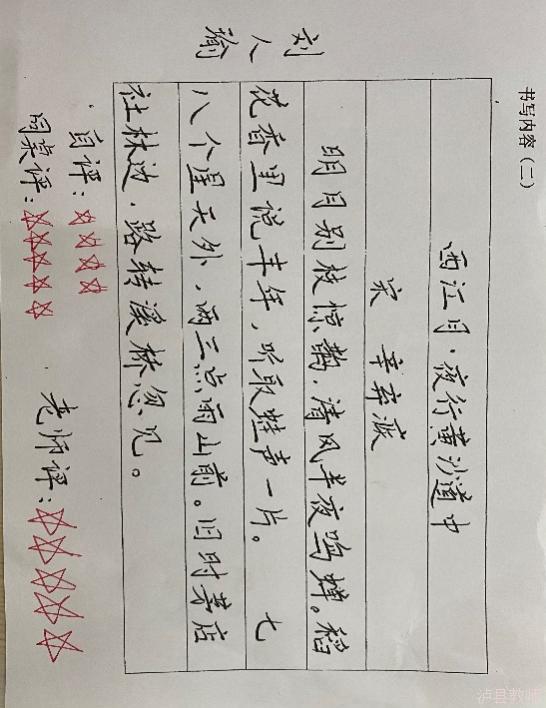 书写内容（二）
西江月·夜行黄沙道中
宋 辛弃疾
明月别枝惊鹊，清风半夜鸣蝉。稻
花香里说丰年，听取蛙声一片。 七
八个星天外，两三点雨山前。旧时茅店
社林边，路转溪林忽见。
自评：☆☆☆☆
同桌评：☆☆☆☆☆
老师评：☆☆☆☆☆
刘人瑜
泸县教师